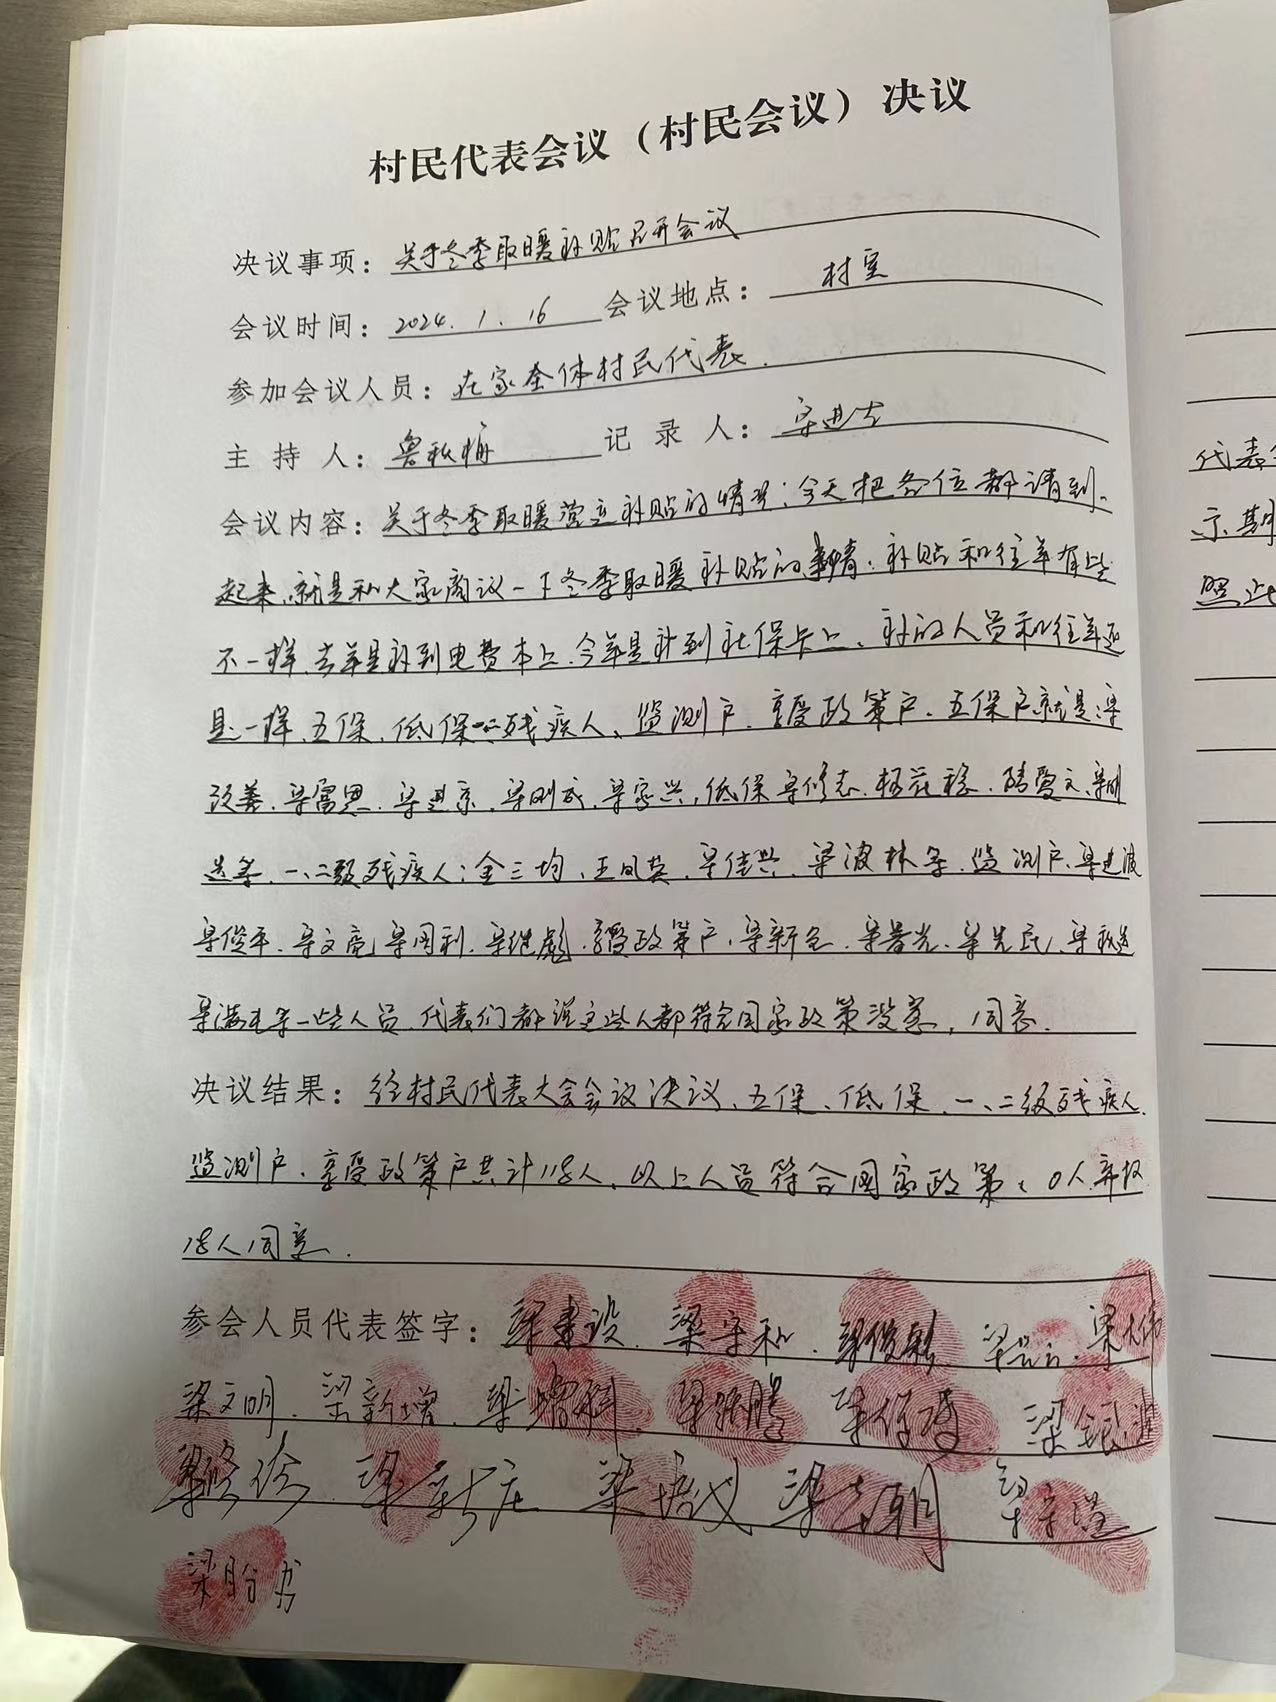 村民代表会议（村民会议）决议
决议事项：关于冬季取暖补贴召开会议
会议时间：2024.1.16 会议地点：村室
参加会议人员：在家全体村民代表.
主持人：鲁秋梅 记录人：梁进
会议内容：关于冬季取暖 补贴的情况：今天把各位都请到
起来，就是和大家商议一下冬季取暖补贴的事情：补贴和往年有些
不一样，去年是补到电费本上，今年是补到社保卡上、补的人员和往年还
是一样，五保，低保 残疾人、监测户，享受政策户，五保户就是：梁
改善，梁富恩，梁进京，梁刚成，梁家兴，低保梁修志，杨花稳，陆爱文，梁
等，一、二级残疾人：金三均，王凤英，梁佳兴，梁波林等，监测户，梁进波
梁俊平，梁文亮，梁国利，梁继彪，享受政策户，梁新全，梁春光，梁先民，梁秋
梁海 等一些人员，代表们都说这些人都符合国家政策没意，同意.
决议结果：经村民代表大会会议决议、五保、低保、一、二级残疾人，
监测户，享受政策户共计118人，以上人员符合国家政策，0人弃权
18人同意.
参会人员代表签字：梁建设，梁守和，梁俊 梁 梁大伟
梁文明，梁新增，梁增科，梁跃腾，梁保 梁银波
梁修珍 梁新庄 梁培议 梁志朝 梁守
梁
代表
示期
照